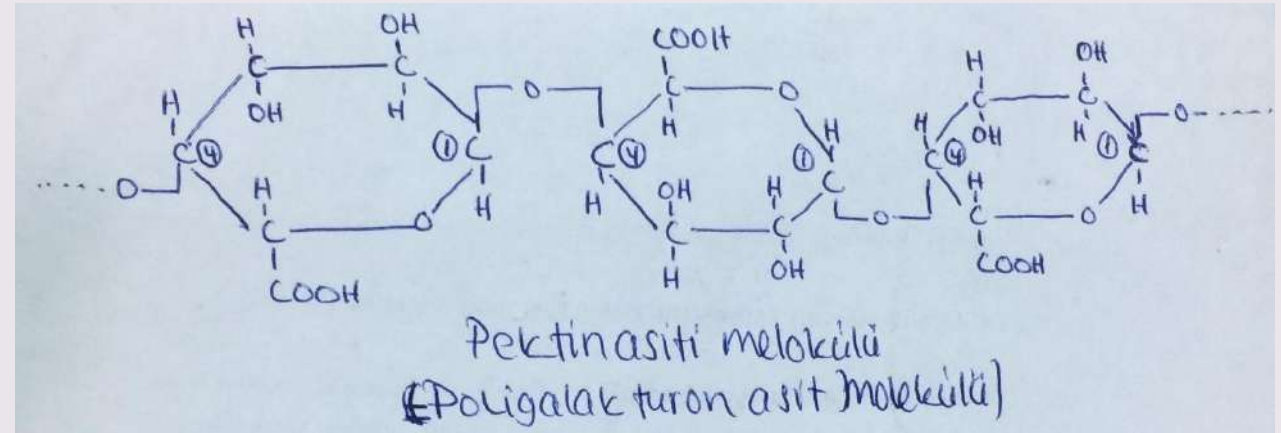 H OH COOH H OH
C C O C O C C O
H OH H H H H OH H
C ④ ① C C ④ ① C C ④ ① C
O H H H OH H H O H
C O C C O C O
COOH H OH COOH
Pektinasiti melokülü
(Poligalak turon asit molekülü)